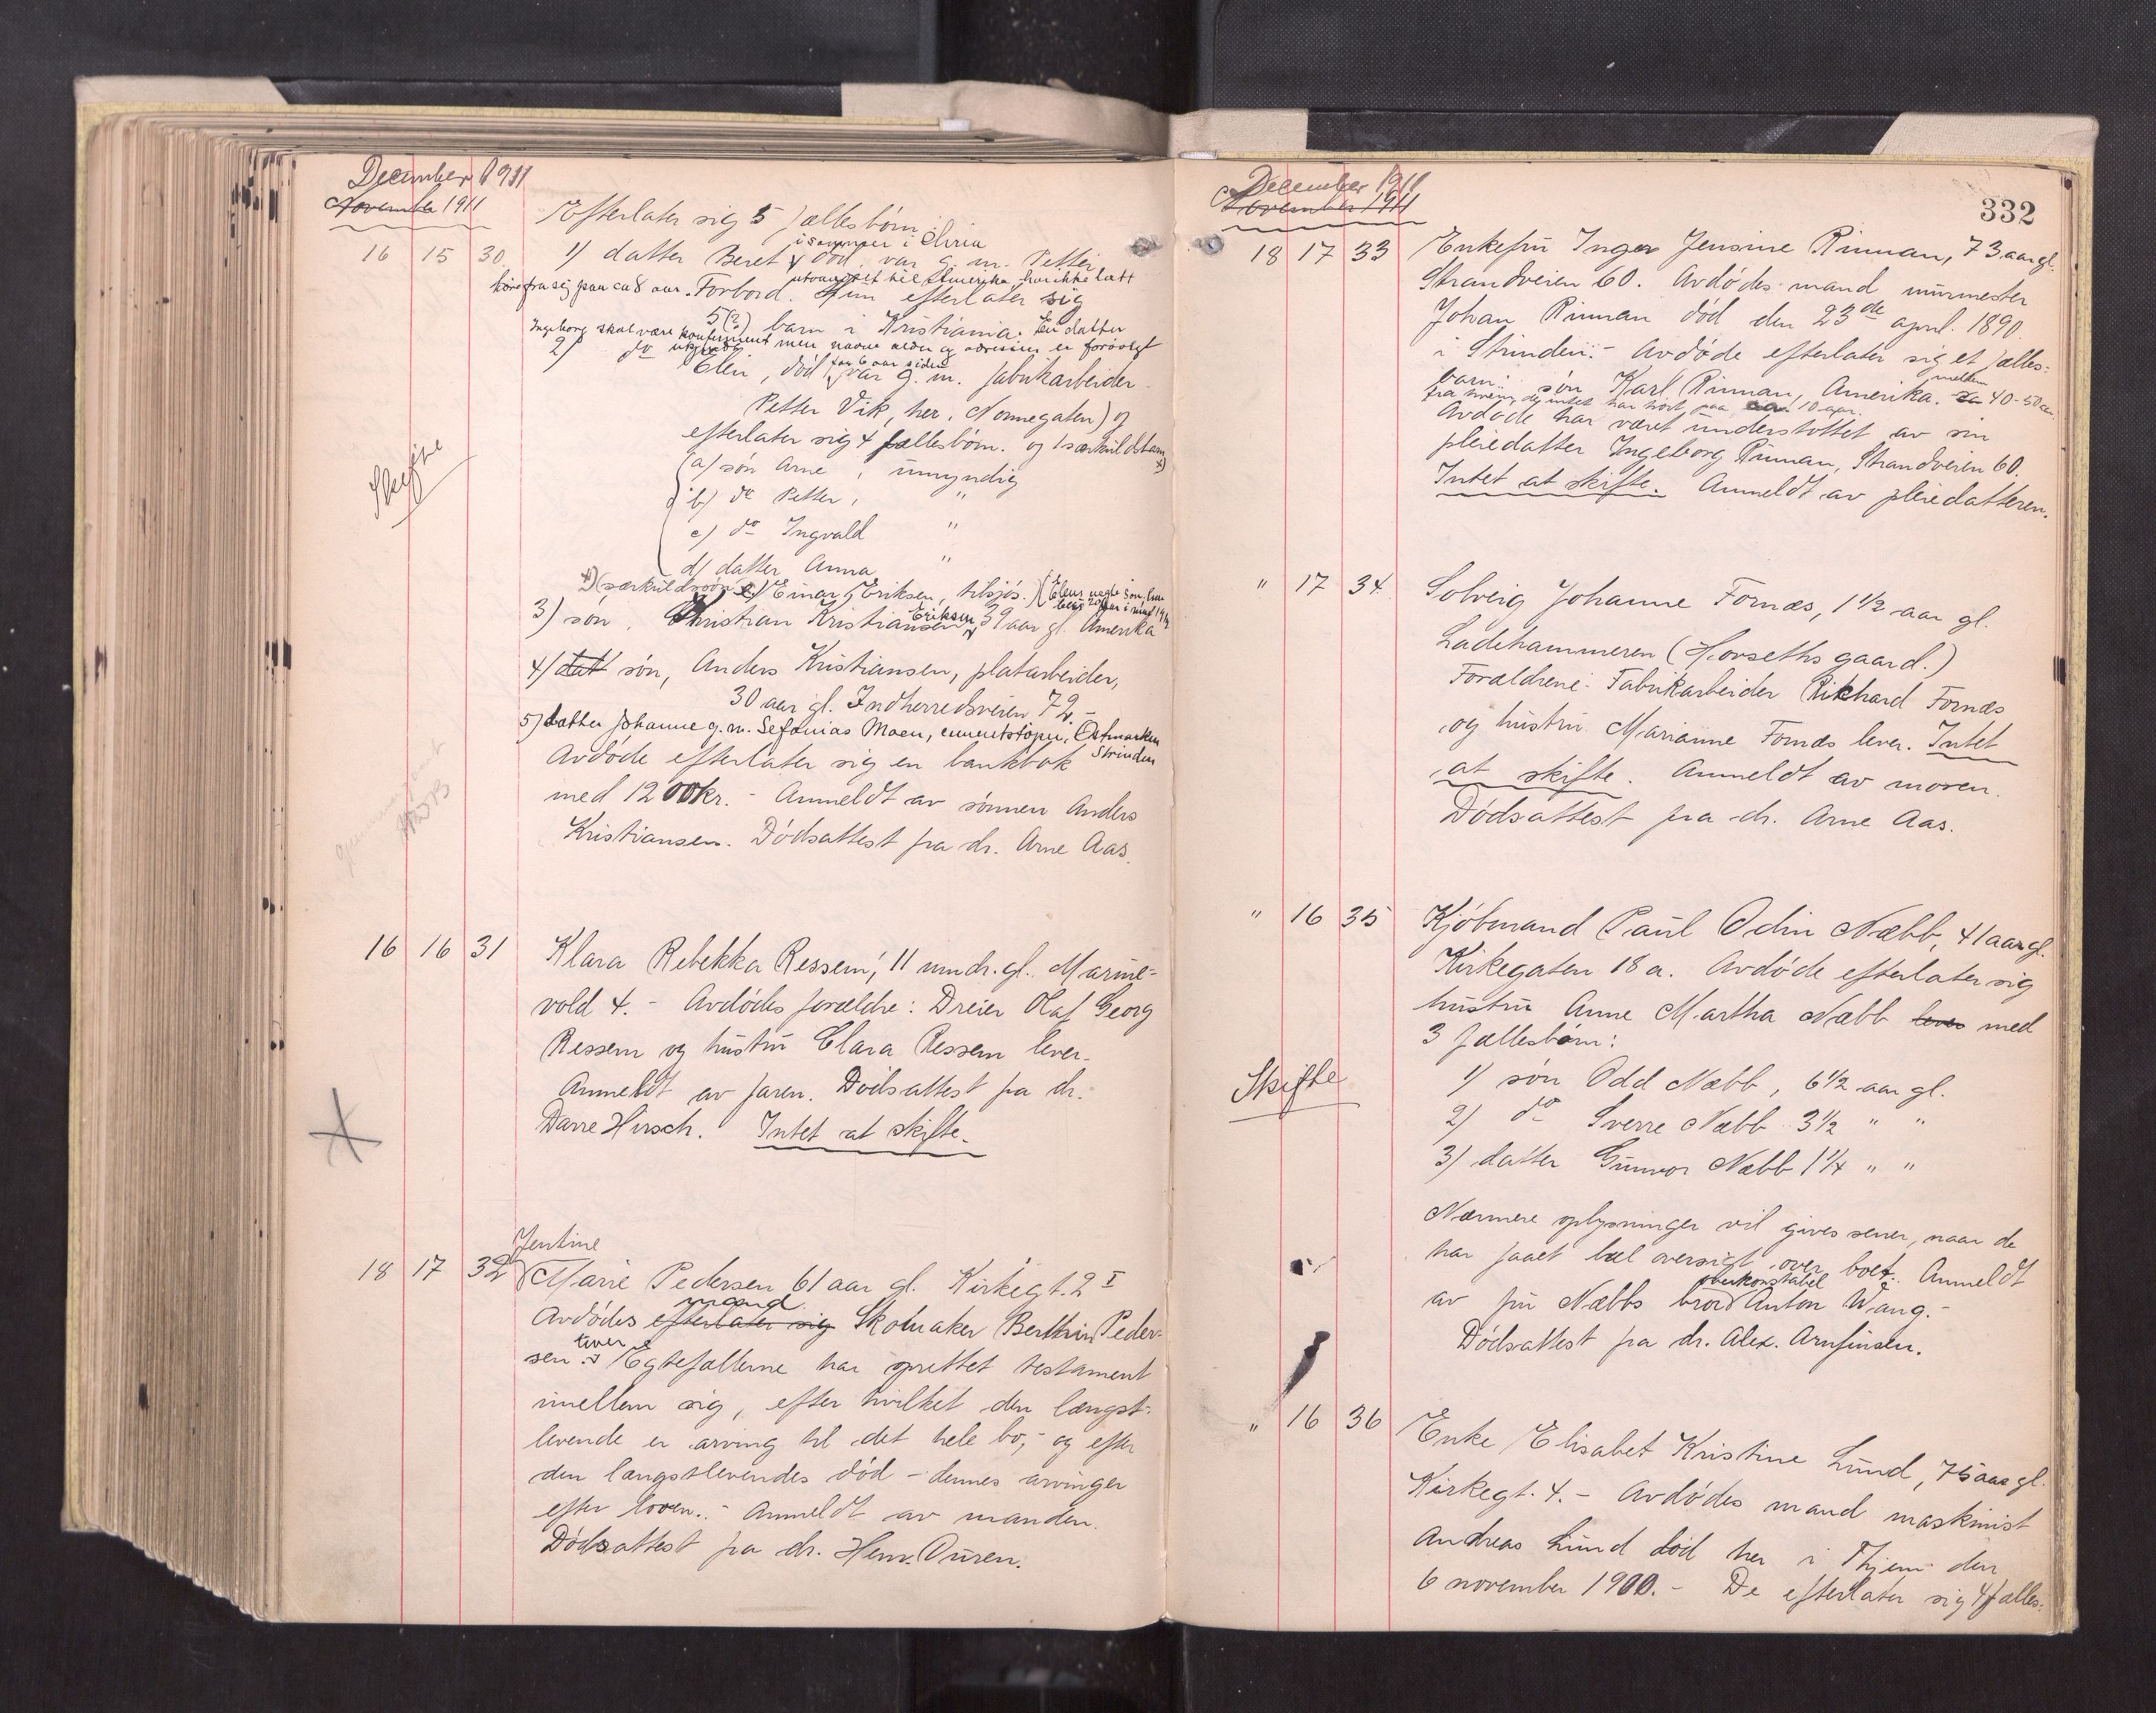 December 1911
November 1911
Efterlater sig 5 fællesbørn:
16 15 30. 1) datter Beret, død i sommer i var g. m. Petter
utvandret til Amerika, har ikke latt
høre fra sig paa ca 8 aar. Forbord. Hun efterlater sig
5(?) barn i Kristiania. En datter
Ingeborg skal være konfirmert men navne alder og adresser er forøvrigt
ukjendt
2) do Elen, død for 6 aar siden var g. m. fabrikarbeider
Petter Vik, her, Nonnegaten) og
efterlater sig 4 fællesbørn. og 1 særkuldsbarn x)
a) søn Arne, umyndig
b) do Petter, "
c) do Ingvald "
d) datter Anna "
x) (særkuldssøn e) Einar Eriksen, tilsjøs.) (Elens uegte søn,
3) søn, Kristian Kristiansen Eriksen, 39 aar gl. Amerika
4) datt søn, Anders Kristiansen, platarbeider,
30 aar gl. Indherredsveien 72.-
5) datter Johanne g. m. Sefanias Moen, Østmarken
Strinden
Avdøde efterlater sig en bankbok
med 1200 kr. - Anmeldt av sønnen Anders
Kristiansen. Dødsattest fra dr. Arne Aas.
Skifte
16 16 31 Klara Rebekka Ressem, 11 mndr. gl. Marine-
vold 4. - Avdødes forældre: Dreier Olaf Georg
Ressem og hustru Clara Ressem lever.
Anmeldt av faren. Dødsattest fra dr.
Darre Hirsch. Intet at skifte.
Jentine
18 17 32 Marie Pedersen 61 aar gl. Kirkegt. 2 I
mand
Avdødes efterlater sig Skomaker Berthin Peder-
sen lever. Egtefællerne har oprettet testament
imellem sig, efter hvilket den længst-
levende er arving til det hele bo, - og efter
den længstlevendes død - dennes arvinger
efter loven. - Anmeldt av manden.
Dødsattest fra dr. Henr. Ouren.
332
December 1911
November 1911
18 17 33 Enkefru Inger Jensine Rinnan, 73 aar gl.
Strandveien 60. Avdødes mand murmester
Johan Rinnan død den 23de april 1890
i Strinden. - Avdøde efterlater sig et fælles-
barn: søn Karl Rinnan, Amerika. mellem ca 40-50 aar.
fra hvem de intet har hørt paa ca. 10 aar.
Avdøde har været understøttet av sin
pleiedatter Ingeborg Rinnan, Strandveien 60.
Intet at skifte. Anmeldt av pleiedatteren.
" 17 34 Solveig Johanne Fornæs, 1 1/2 aar gl.
Ladehammeren (Horseths gaard.)
Forældrene: Fabrikarbeider Rikhard Fornæs
og hustru Marianne Fornæs lever. Intet
at skifte. Anmeldt av moren.
Dødsattest fra dr. Arne Aas.
" 16 35 Kjøbmand Paul Odin Næbb, 41 aar gl.
Kirkegaten 18 a. Avdøde efterlater sig
hustru Anne Martha Næbb lever med
3 fællesbørn:
Skifte
1) søn Odd Næbb, 6 1/2 aar gl.
2) do Sverre Næbb 3 1/2 " "
3) datter Gunvor Næbb 1 1/4 " "
Nærmere oplysninger vil gives senere, naar de
har faaet hel oversigt over boet. Anmeldt
av fru Næbbs bror overkonstabel Anton Wang. -
Dødsattest fra dr. Alex. Arnfinsen.
" 16 36 Enke Elisabet Kristine Lund, 75 aar gl.
Kirkegt. 4. - Avdødes mand maskinist
Andreas Lund død her i Thjem den
6 november 1900. - De efterlater sig 4 fælles-